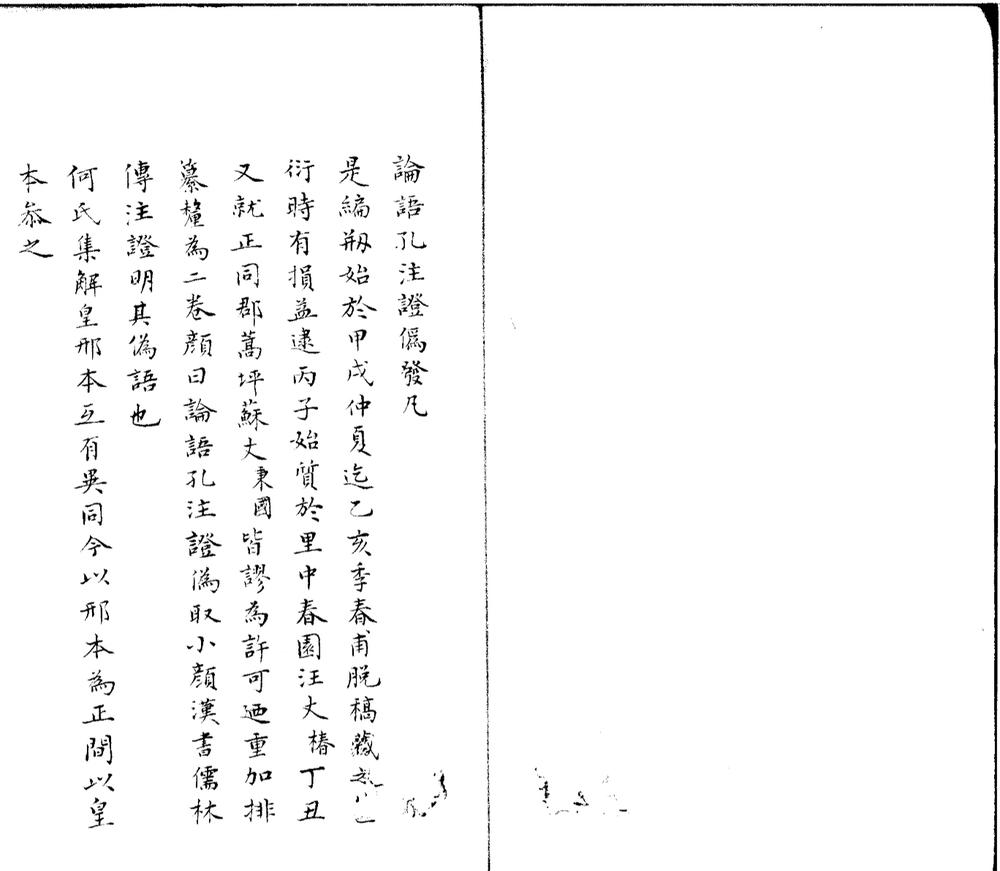 論語孔注證僞發凡
是編刱始於甲戌仲夏迄乙亥季春甫脫稿藏
衍時有損益逮丙子始質於里中春園汪丈椿丁丑
又就正同郡蒿坪蘇丈秉國皆謬為許可迺重加排
纂釐為二卷顔曰論語孔注證偽取小顔漢書儒林
傳注證明其偽語也
何氏集解皇邢本互有異同今以邢本為正間以皇
本叅之